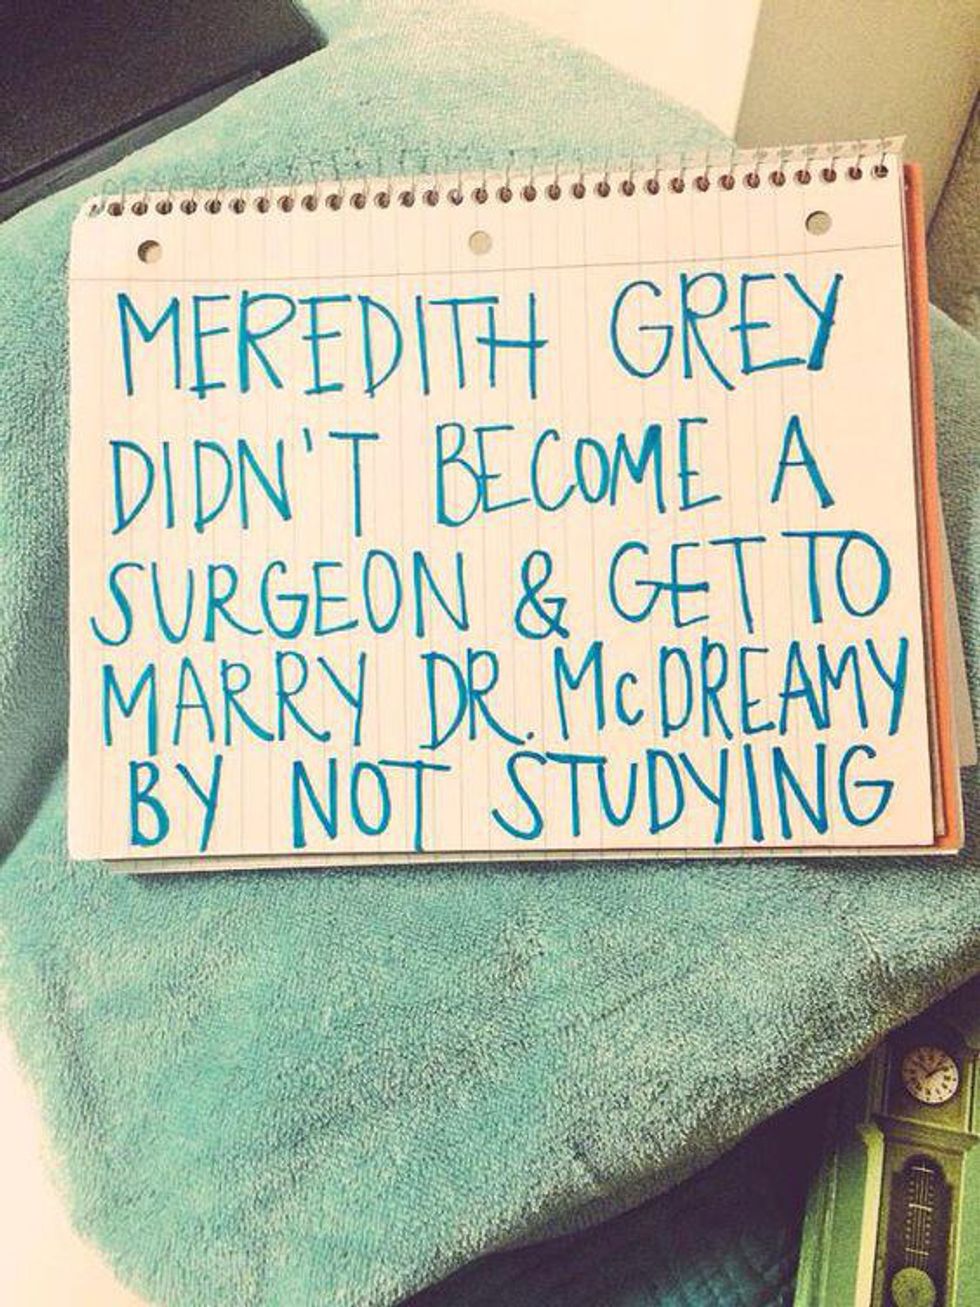 MEREDITH GREY
DIDN'T BECOME A
SURGEON & GET TO
MARRY DR. McDREAMY
BY NOT STUDYING